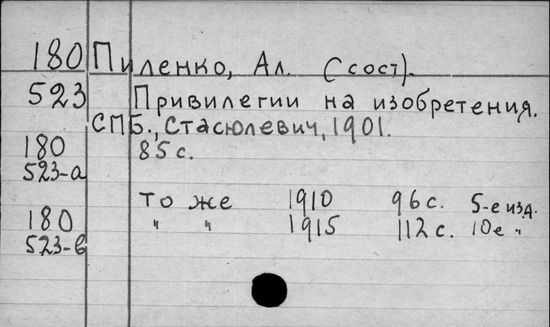 180 Пиленко, Ал. (сост).
523 Привилегии на изобретения.
СПБ., Стасюлевич, 1901.
180 85 с.
523-а
то же 1910 96 с. 5-е изд.
180 " " 1915 112 с. 10е "
523-в